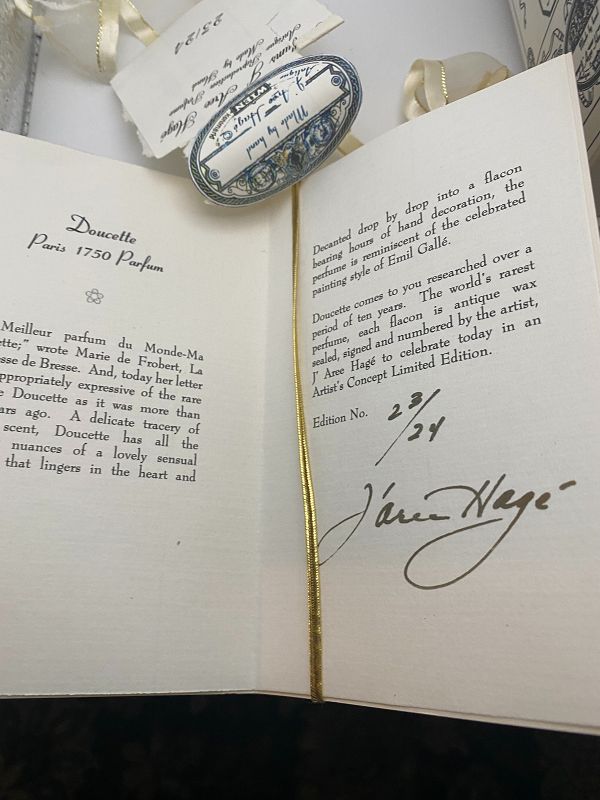 23/24
Hagé
J' Aree
Antique
Made by
Hand
Made by hand
J' Aree Hagé
WIEN
Antique
Doucette
Paris 1750 Parfum
Meilleur parfum du Monde-Ma
ette;" wrote Marie de Frobert, La
sse de Bresse. And, today her letter
ppropriately expressive of the rare
e Doucette as it was more than
ars ago. A delicate tracery of
scent, Doucette has all the
nuances of a lovely sensual
that lingers in the heart and
Decanted drop by drop into a flacon
bearing hours of hand decoration, the
perfume is reminiscent of the celebrated
painting style of Emil Gallé.
Doucette comes to you researched over a
period of ten years. The world's rarest
perfume, each flacon is antique wax
sealed, signed and numbered by the artist,
J' Aree Hagé to celebrate today in an
Artist's Concept Limited Edition.
Edition No. 23/24
J'aree Hagé